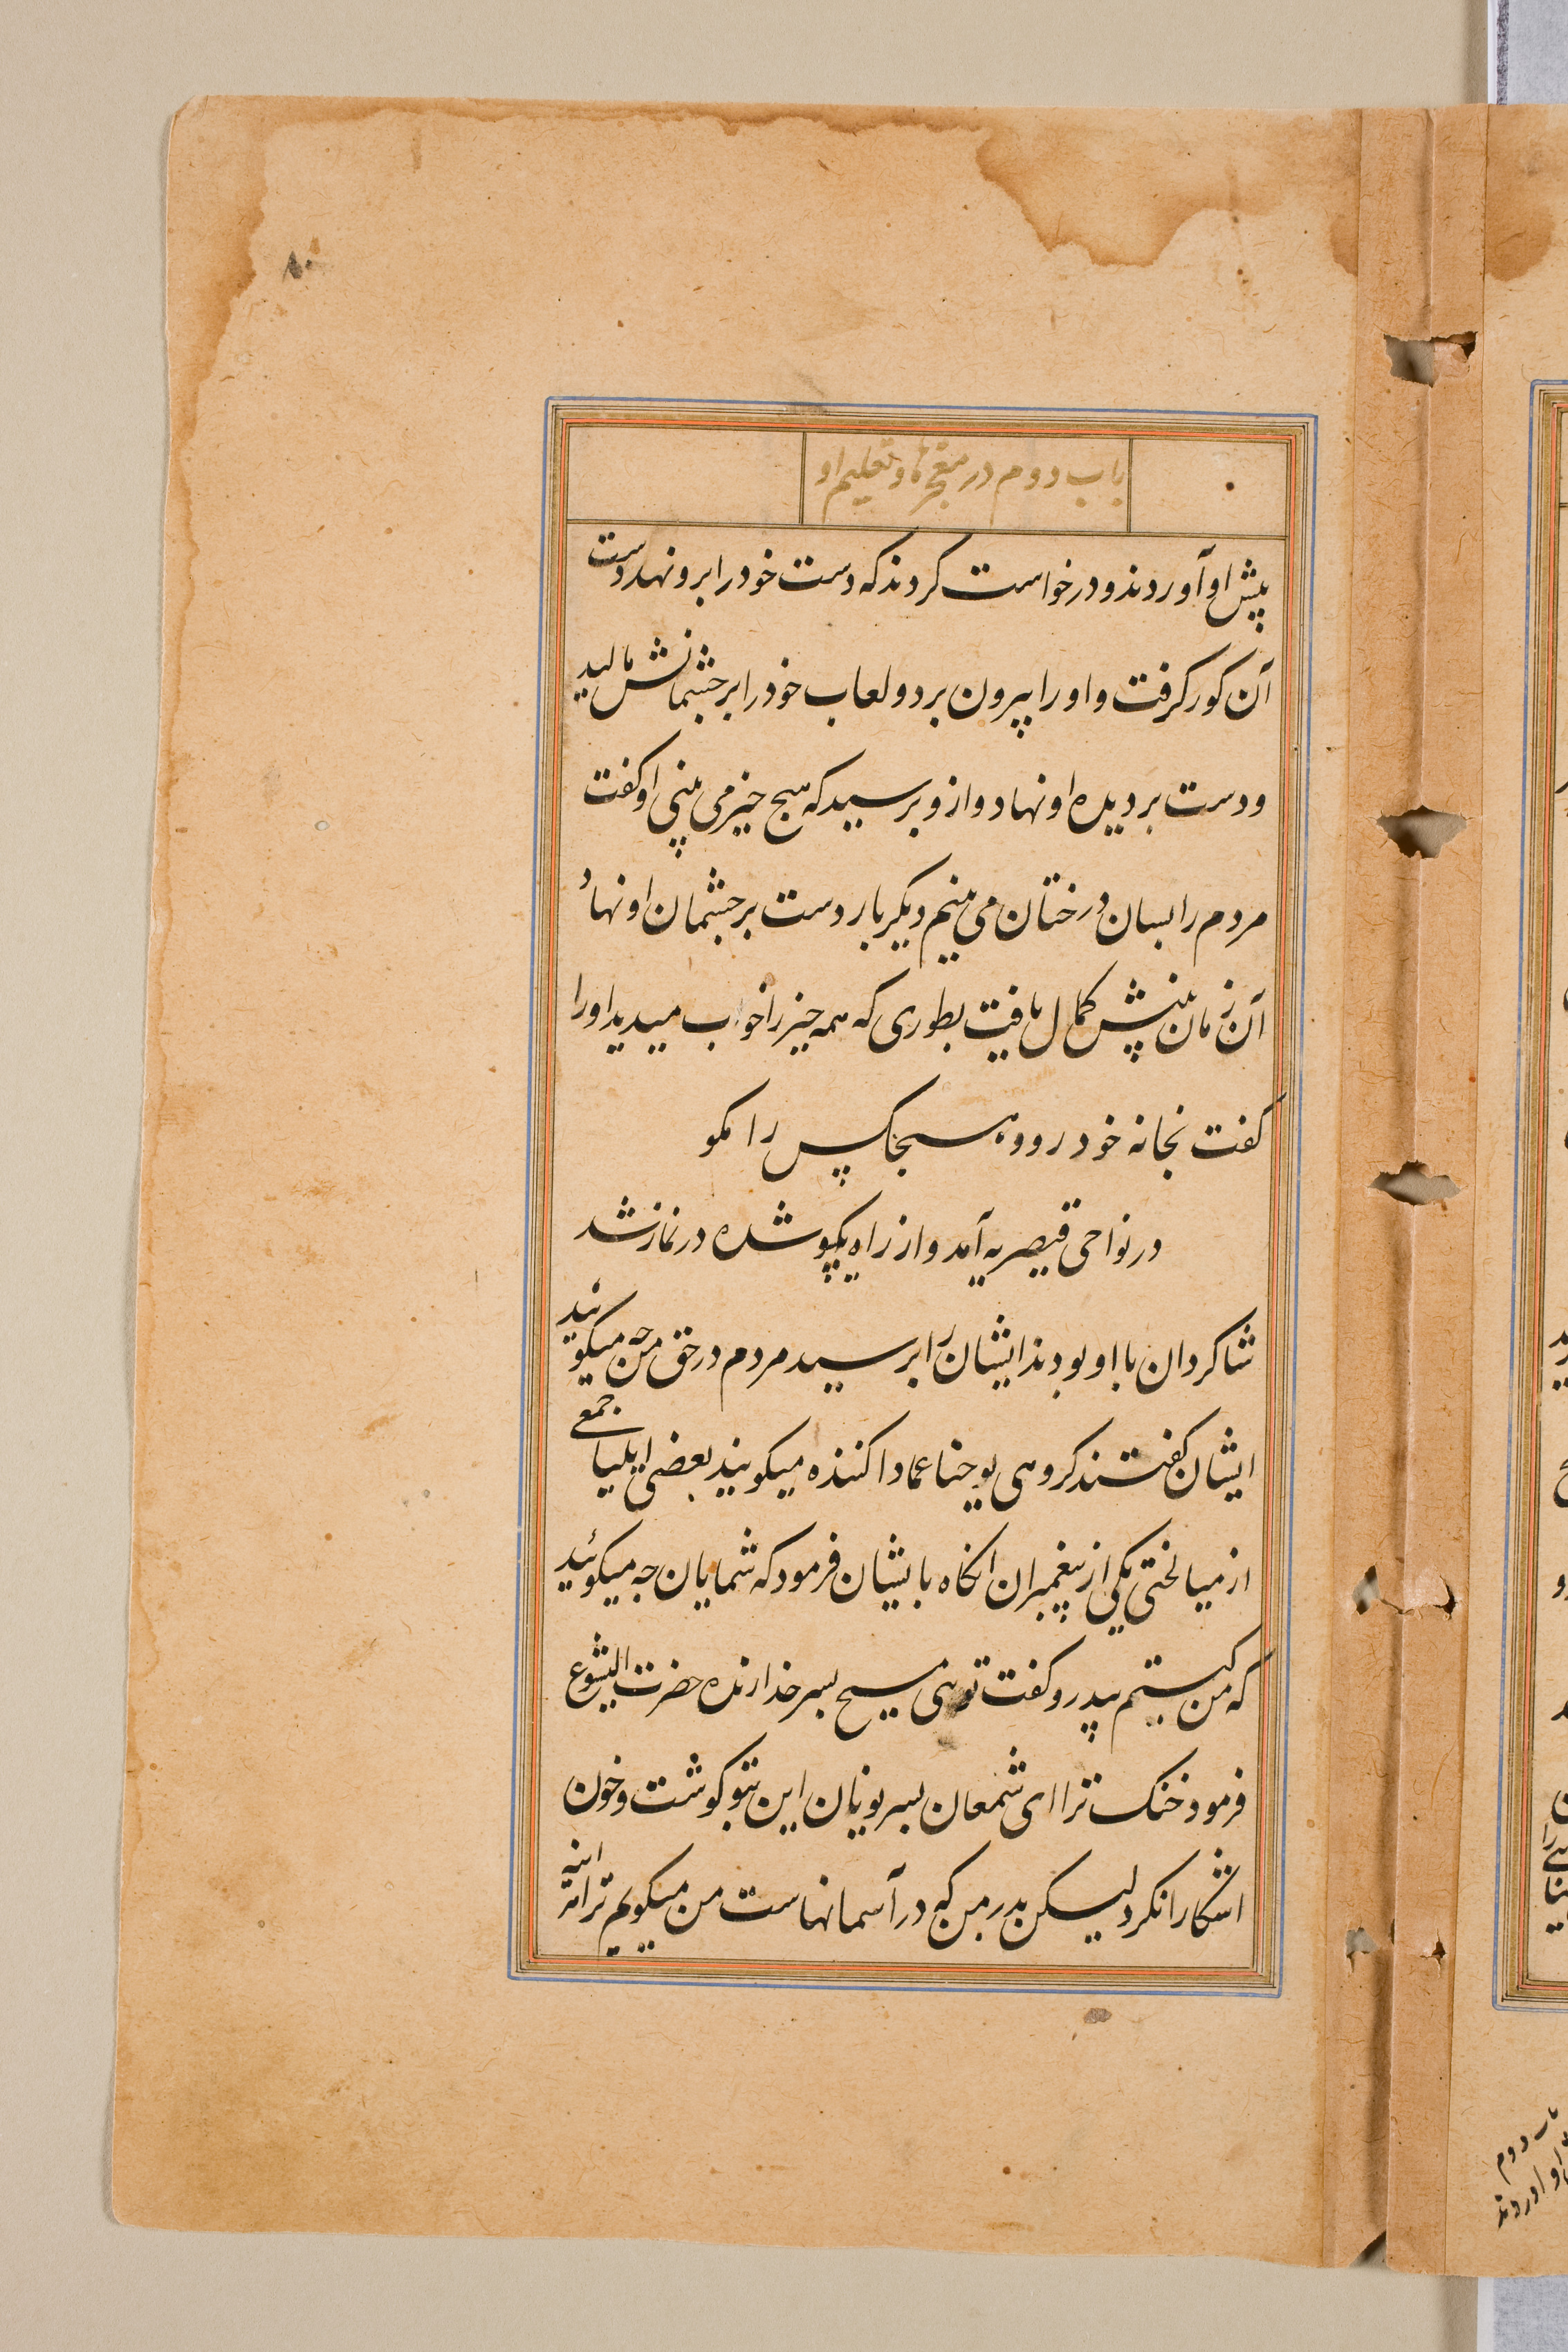 ۸۰
باب دوم در معجزهٔ و تعلیم او
پیش او آوردند و درخواست کردند که دست خود را برو نهد دست
آن کور کرفت و او را بیرون برد و لعاب خود را بر جشمانش مالید
و دست بر دیده او نهاد و ازو برسید که هیج جیز می بینی او کفت
مردم را بسان درختان می بینم دیکر بار دست بر جشمان او نهاد
آن زمان بینش کمال یافت بطوری که همه جیز را خواب میدید او را
کفت بخانه خود رو و هیجکس را مکو
در نواحی قیصریه آمد و از راه یکسو شده در نماز شد
شاکردان با او بودند ایشان را برسید مردم در حق من جه میکویند
ایشان کفتند کروهی یوحنا عماد اکننده میکویند بعضی ایلیا جمعے
ارمیا لختی یکی از پیغمبران انکاه بایشان فرمود که شمایان جه میکوئید
که من کیستم پیدرو کفت توهی مسیح بسر خدا زنده حضرت الیشوع
فرمود خنک ترا ای شمعان بسر یونان این بتو کوشت و خون
اشکارا نکرد لیکن بدر من که در آسمانهاست من میکویم ترا
باب دوم
او اوردند